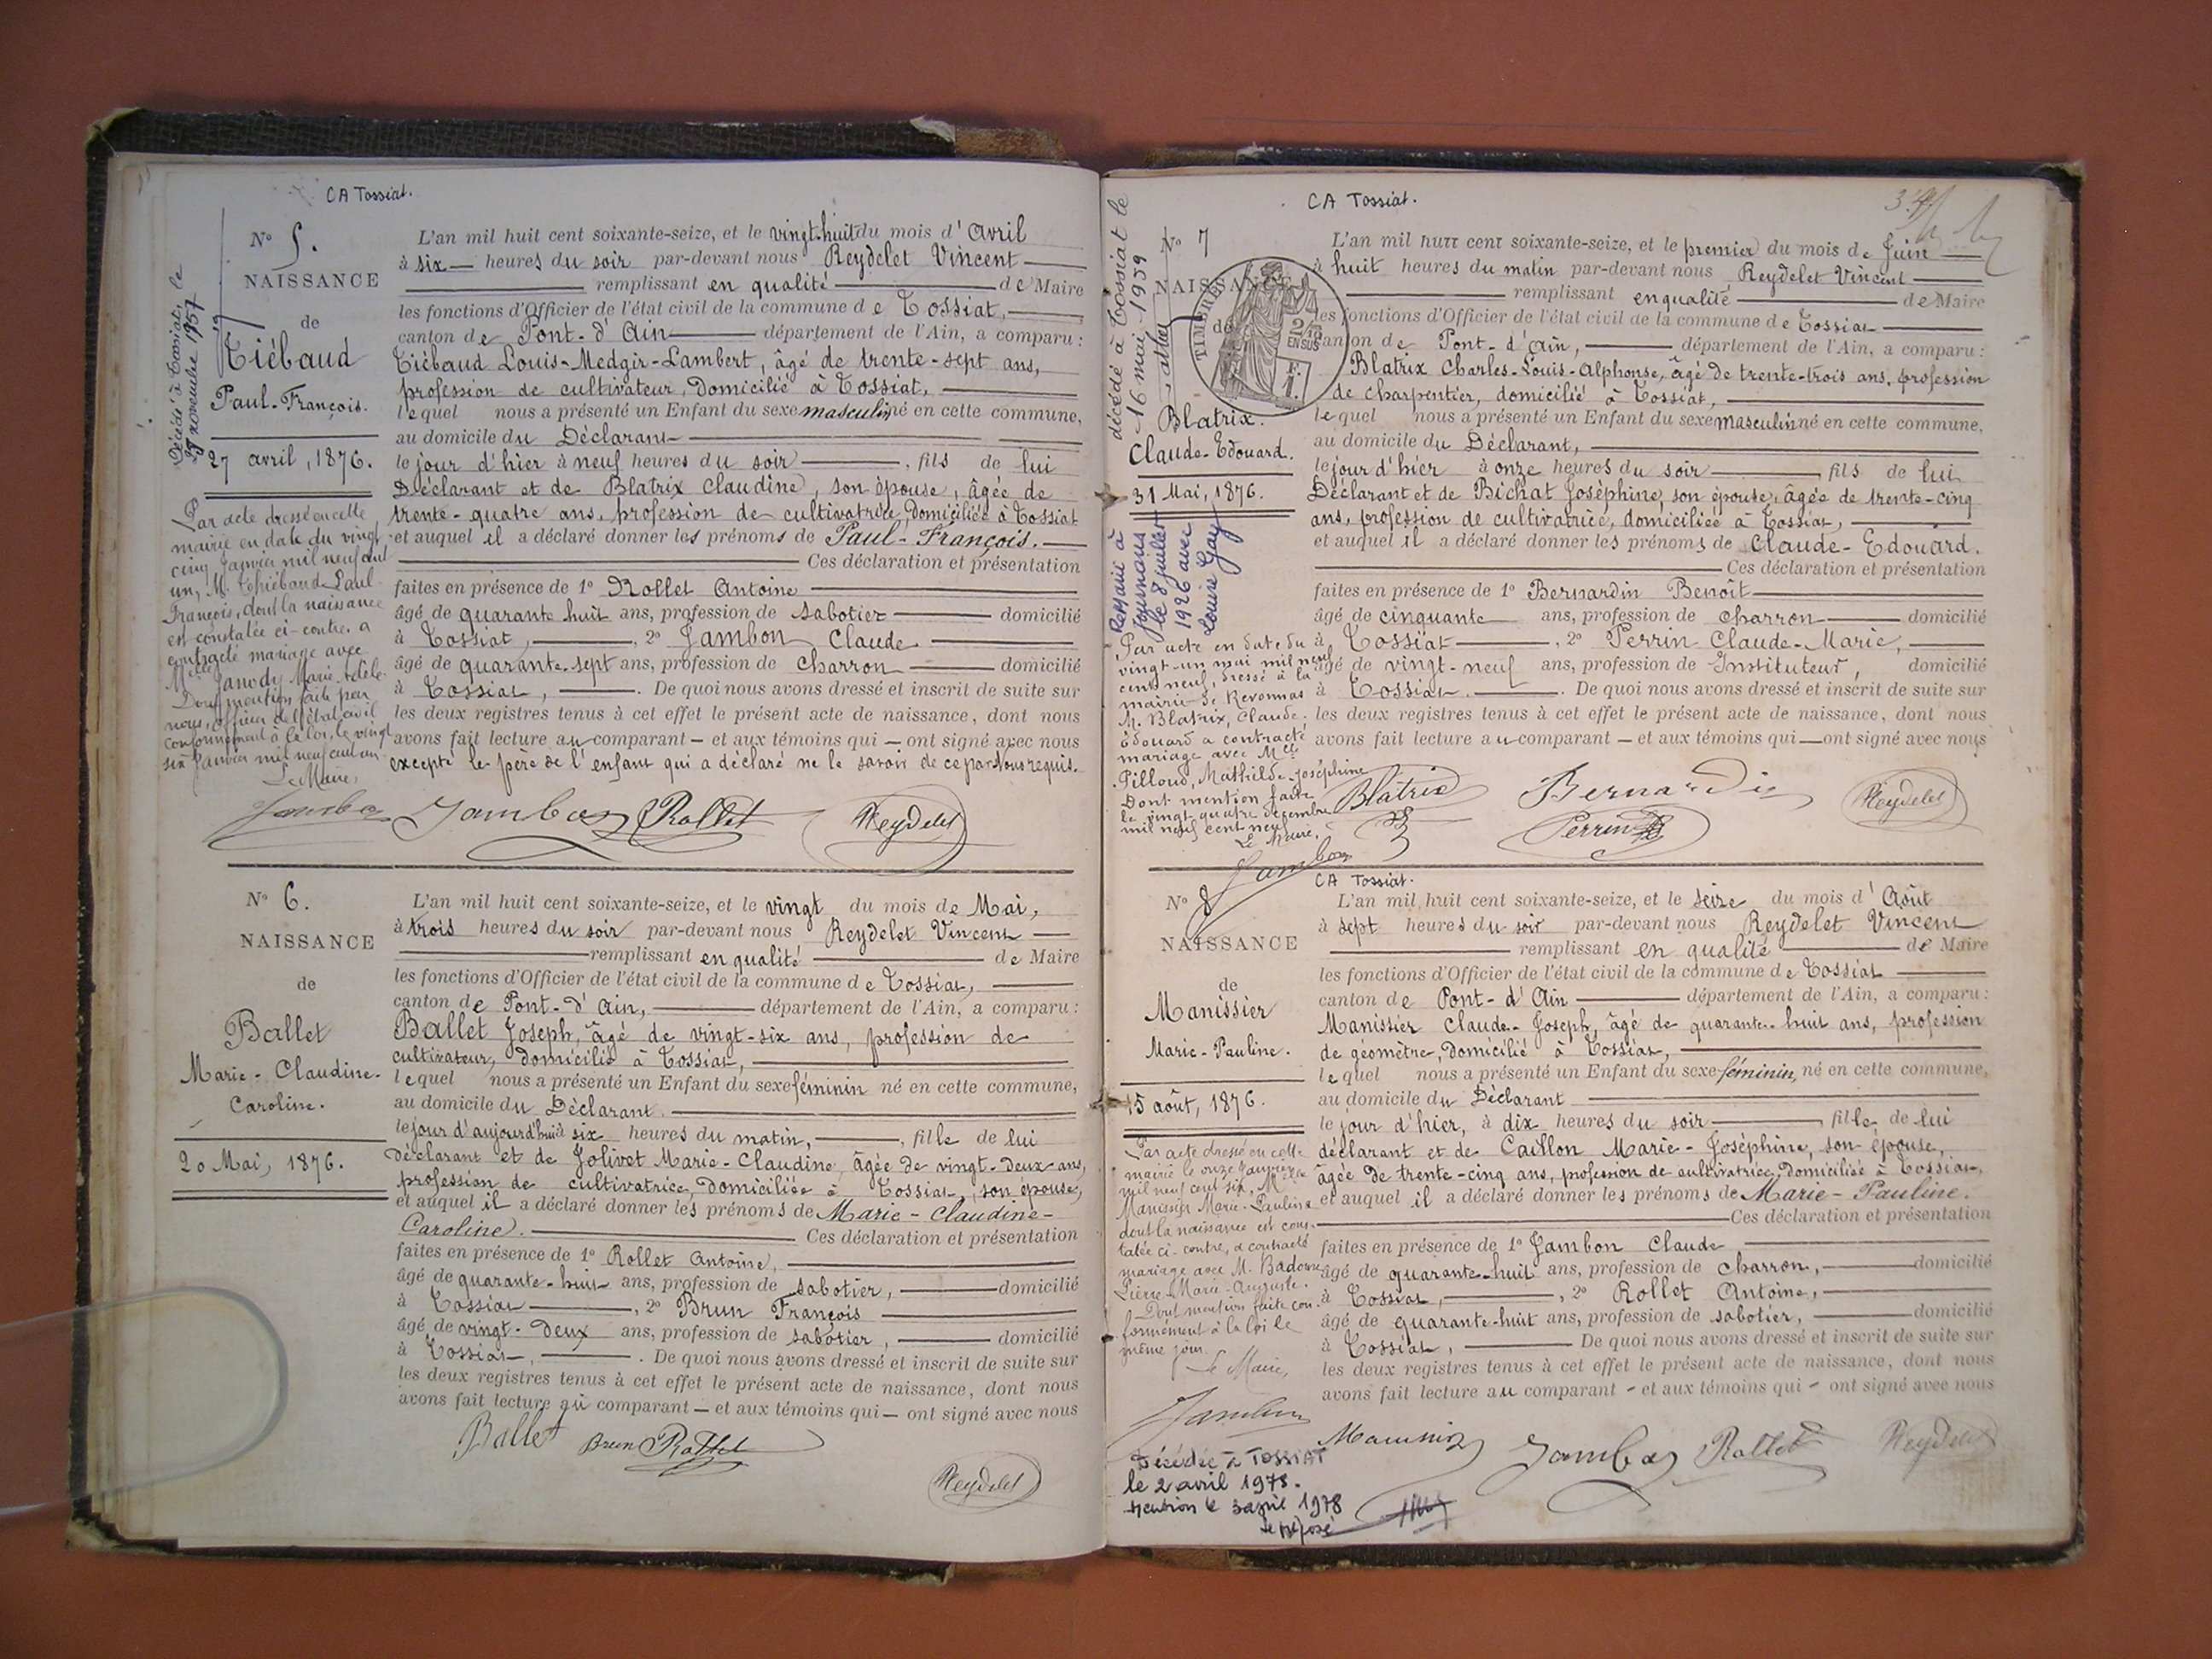 CA Tossiat.
N° 5.
NAISSANCE
de
Tiébaud
Paul-François.
27 avril, 1876.
Décédé à Tossiat, le
novembre 1957
Par acte dressé en cette
mairie en date du vingt
cinq Janvier mil neuf cent
un, M. Thiébaud Paul
François, dont la naissance
est constatée ci-contre, a
contracté mariage avec
Melle Janody Marie Adèle
Dont mention faite par
nous, officier de l'état civil
conformément à la loi, le vingt
six Janvier mil neuf cent un
Le Maire,
L'an mil huit cent soixante-seize, et le vingt-huit du mois d'avril
à six heures du soir par-devant nous Reydelet Vincent
remplissant en qualité de Maire
les fonctions d'Officier de l'état civil de la commune de Tossiat,
canton de Pont-d'Ain département de l'Ain, a comparu :
Tiébaud Louis-Medgir-Lambert, âgé de trente-sept ans,
profession de cultivateur, Domicilié à Tossiat,
lequel nous a présenté un Enfant du sexe masculin né en cette commune,
au domicile du Déclarant
le jour d'hier à neuf heures du soir, fils de lui
Déclarant et de Blatrix Claudine, son épouse, âgée de
trente-quatre ans, profession de cultivatrice, domiciliée à Tossiat
et auquel il a déclaré donner les prénoms de Paul-François.
Ces déclaration et présentation
faites en présence de 1° Rollet Antoine
âgé de quarante huit ans, profession de sabotier domicilié
à Tossiat, 2° Jambon Claude
âgé de quarante-sept ans, profession de charron domicilié
à Tossiat, . De quoi nous avons dressé et inscrit de suite sur
les deux registres tenus à cet effet le présent acte de naissance, dont nous
avons fait lecture au comparant — et aux témoins qui — ont signé avec nous
excepté le père de l'enfant qui a déclaré ne le savoir de ce par Nous requis.
Jambon Jambon Rollet Reydelet
N° 6.
NAISSANCE
de
Ballet
Marie-Claudine-
Caroline.
20 Mai, 1876.
L'an mil huit cent soixante-seize, et le vingt du mois de Mai,
à trois heures du soir par-devant nous Reydelet Vincent
remplissant en qualité de Maire
les fonctions d'Officier de l'état civil de la commune de Tossiat,
canton de Pont-d'Ain, département de l'Ain, a comparu :
Ballet Joseph, âgé de vingt-six ans, profession de
cultivateur, domicilié à Tossiat,
lequel nous a présenté un Enfant du sexe féminin né en cette commune,
au domicile du Déclarant.
le jour d'aujourd'hui à six heures du matin, , fille de lui
déclarant et de Jolivet Marie-Claudine, âgée de vingt-deux ans,
profession de cultivatrice, domiciliée à Tossiat, son épouse,
et auquel il a déclaré donner les prénoms de Marie-Claudine-
Caroline. Ces déclaration et présentation
faites en présence de 1° Rollet Antoine,
âgé de quarante-huit ans, profession de sabotier, domicilié
à Tossiat, 2° Brun François
âgé de vingt-deux ans, profession de sabotier, domicilié
à Tossiat, . De quoi nous avons dressé et inscrit de suite sur
les deux registres tenus à cet effet le présent acte de naissance, dont nous
avons fait lecture au comparant — et aux témoins qui — ont signé avec nous
Ballet Brun Rollet
Reydelet
CA Tossiat.
N° 7
NAISSANCE
de
TIMBRE
2/10
EN SUS
F.
1.
Blatrix.
Claude-Edouard.
31 Mai, 1876.
décédé à Tossiat le
16 mai 1959
Remarié à
Journans
le 8 juillet
1926 avec
Louise Gay
Par acte en date du
vingt-un mai mil neuf
cent neuf, dressé à la
mairie de Revonnas
M. Blatrix, Claude-
Edouard a contracté
mariage avec Melle
Pilloud, Mathilde-Joséphine
Dont mention faite
le vingt-quatre décembre
mil neuf cent neuf
Le Maire,
Jambon
L'an mil huit cent soixante-seize, et le premier du mois de Juin
à huit heures du matin par-devant nous Reydelet Vincent
remplissant en qualité de Maire
les fonctions d'Officier de l'état civil de la commune de Tossiat
canton de Pont-d'Ain, département de l'Ain, a comparu :
Blatrix Charles-Louis-Alphonse, âgé de trente-trois ans, profession
de charpentier, domicilié à Tossiat,
lequel nous a présenté un Enfant du sexe masculin né en cette commune,
au domicile du Déclarant,
le jour d'hier à onze heures du soir fils de lui
Déclarant et de Bichat Joséphine, son épouse, âgée de trente-cinq
ans, profession de cultivatrice, domiciliée à Tossiat,
et auquel il a déclaré donner les prénoms de Claude-Edouard.
Ces déclaration et présentation
faites en présence de 1° Bernardin Benoît
âgé de cinquante ans, profession de charron domicilié
à Tossiat, 2° Perrin Claude-Marie,
âgé de vingt-neuf ans, profession de Instituteur, domicilié
à Tossiat. . De quoi nous avons dressé et inscrit de suite sur
les deux registres tenus à cet effet le présent acte de naissance, dont nous
avons fait lecture au comparant — et aux témoins qui — ont signé avec nous
Blatrix Bernardin Reydelet
Perrin
CA Tossiat.
N° 8
NAISSANCE
de
Manissier
Marie-Pauline.
15 août, 1876.
Par acte dressé en cette
mairie le onze Janvier
mil neuf cent six, Melle
Manissier Marie-Pauline
dont la naissance est cons-
tatée ci-contre, a contracté
mariage avec M. Badoux
Pierre-Marie-Auguste.
Dont mention faite con-
formément à la loi le
même jour.
Le Maire,
Jambon
Décédée à TOSSIAT
le 2 avril 1978.
Mention le 3 avril 1978
Le préposé
L'an mil huit cent soixante-seize, et le seize du mois d'Août
à sept heures du soir par-devant nous Reydelet Vincent
remplissant en qualité de Maire
les fonctions d'Officier de l'état civil de la commune de Tossiat
canton de Pont-d'Ain département de l'Ain, a comparu :
Manissier Claude-Joseph, âgé de quarante-huit ans, profession
de géomètre, Domicilié à Tossiat,
lequel nous a présenté un Enfant du sexe féminin, né en cette commune,
au domicile du Déclarant
le jour d'hier, à dix heures du soir , fille de lui
déclarant et de Caillon Marie-Joséphine, son épouse,
âgée de trente-cinq ans, profession de cultivatrice, Domiciliée à Tossiat,
et auquel il a déclaré donner les prénoms de Marie-Pauline.
Ces déclaration et présentation
faites en présence de 1° Jambon Claude
âgé de quarante-huit ans, profession de charron, domicilié
à Tossiat, , 2° Rollet Antoine,
âgé de quarante-huit ans, profession de sabotier, domicilié
à Tossiat, De quoi nous avons dressé et inscrit de suite sur
les deux registres tenus à cet effet le présent acte de naissance, dont nous
avons fait lecture au comparant - et aux témoins qui - ont signé avec nous
Manissier Jambon Rollet Reydelet